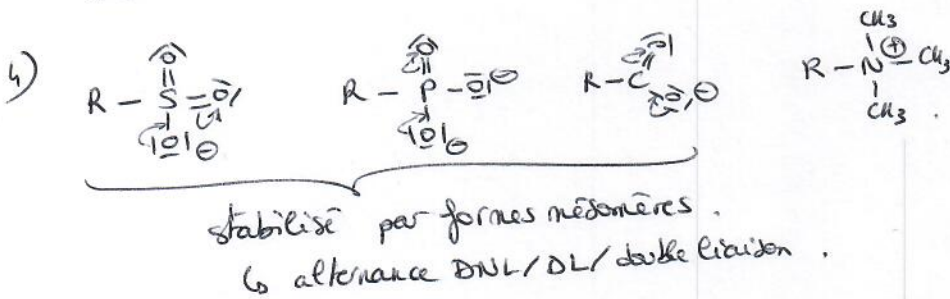 4)
R – S = O O O ⊖
R – P – O ⊖ O O ⊖
R – C O O ⊖
R – N ⊕ – CH3 CH3 CH3 .
stabilisé par formes mésomères .
↳ alternance DNL/DL/double liaison .